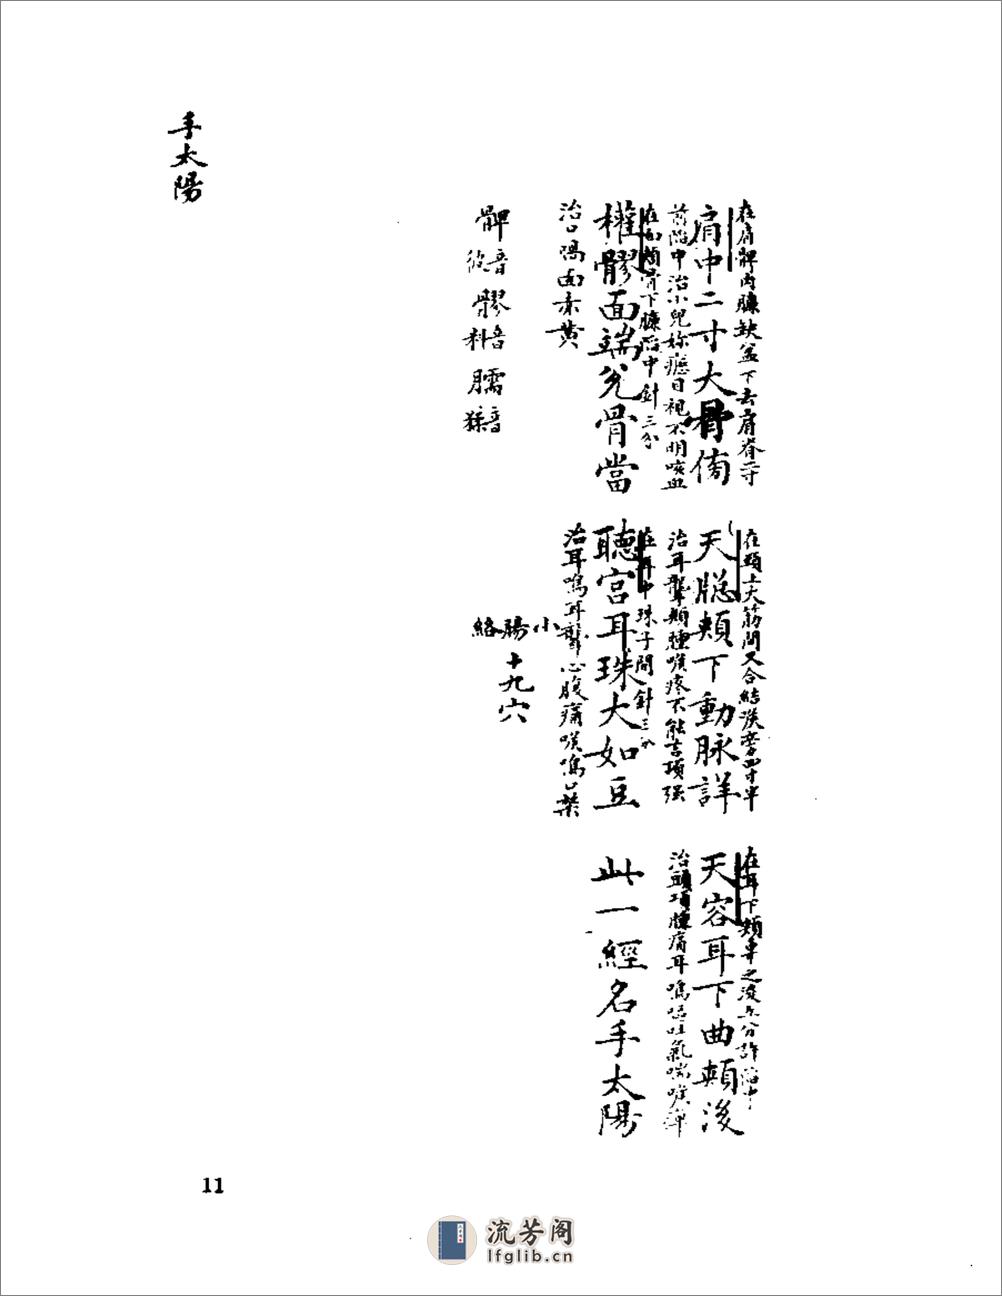 在肩髀內臁缺盆下去肩脊二寸
肩中二寸大骨傍
前陷中治小兒妳癧目視不明咳血
在面頄骨下臁陷中針三分
權髎面端兌骨當
治口喎面赤黃
髀音彼髎音料臑音猱
在頸上大筋間又合結漢旁四寸半
天聰頰下動脉詳
治耳聾頰腫喉疼不能言項强
在耳中珠子間針三分
聽宮耳珠大如豆
治耳鳴耳聾心腹痛
小腸絡
十九穴
在耳下頰車之後五分許陷中
天容耳下曲頰後
治頭項腫痛耳鳴嘔吐氣喘喉痺
此一經名手太陽
手太陽
11
流芳阁
lfglib.cn